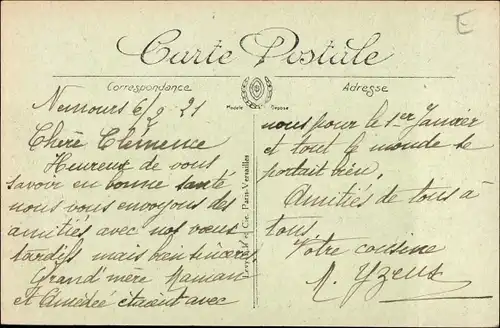 E
Carte Postale
Correspondance
Adresse
Modèle Déposé
Cie, Paris-Versailles
Nemours 6/2 21
Chère Clémence
Heureux de vous
savoir en bonne santé
nous vous envoyons des
amitiés avec nos vœux
tardifs mais bien sincères
Grand'mère Maman
et Amédée étaient avec
nous pour le 1er Janvier
et tout le monde se
portait bien.
Amitiés de tous à
tous
Votre cousine